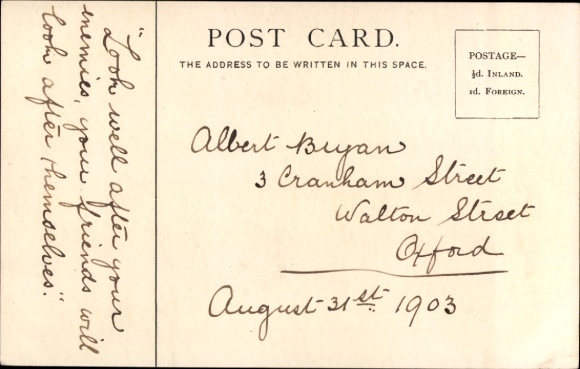 "Look well after your
enemies, your friends will
look after themselves."
POST CARD.
THE ADDRESS TO BE WRITTEN IN THIS SPACE.
POSTAGE—
½d. INLAND.
1d. FOREIGN.
Albert Bryan
3 Cranham Street
Walton Street
Oxford
August 31st 1903